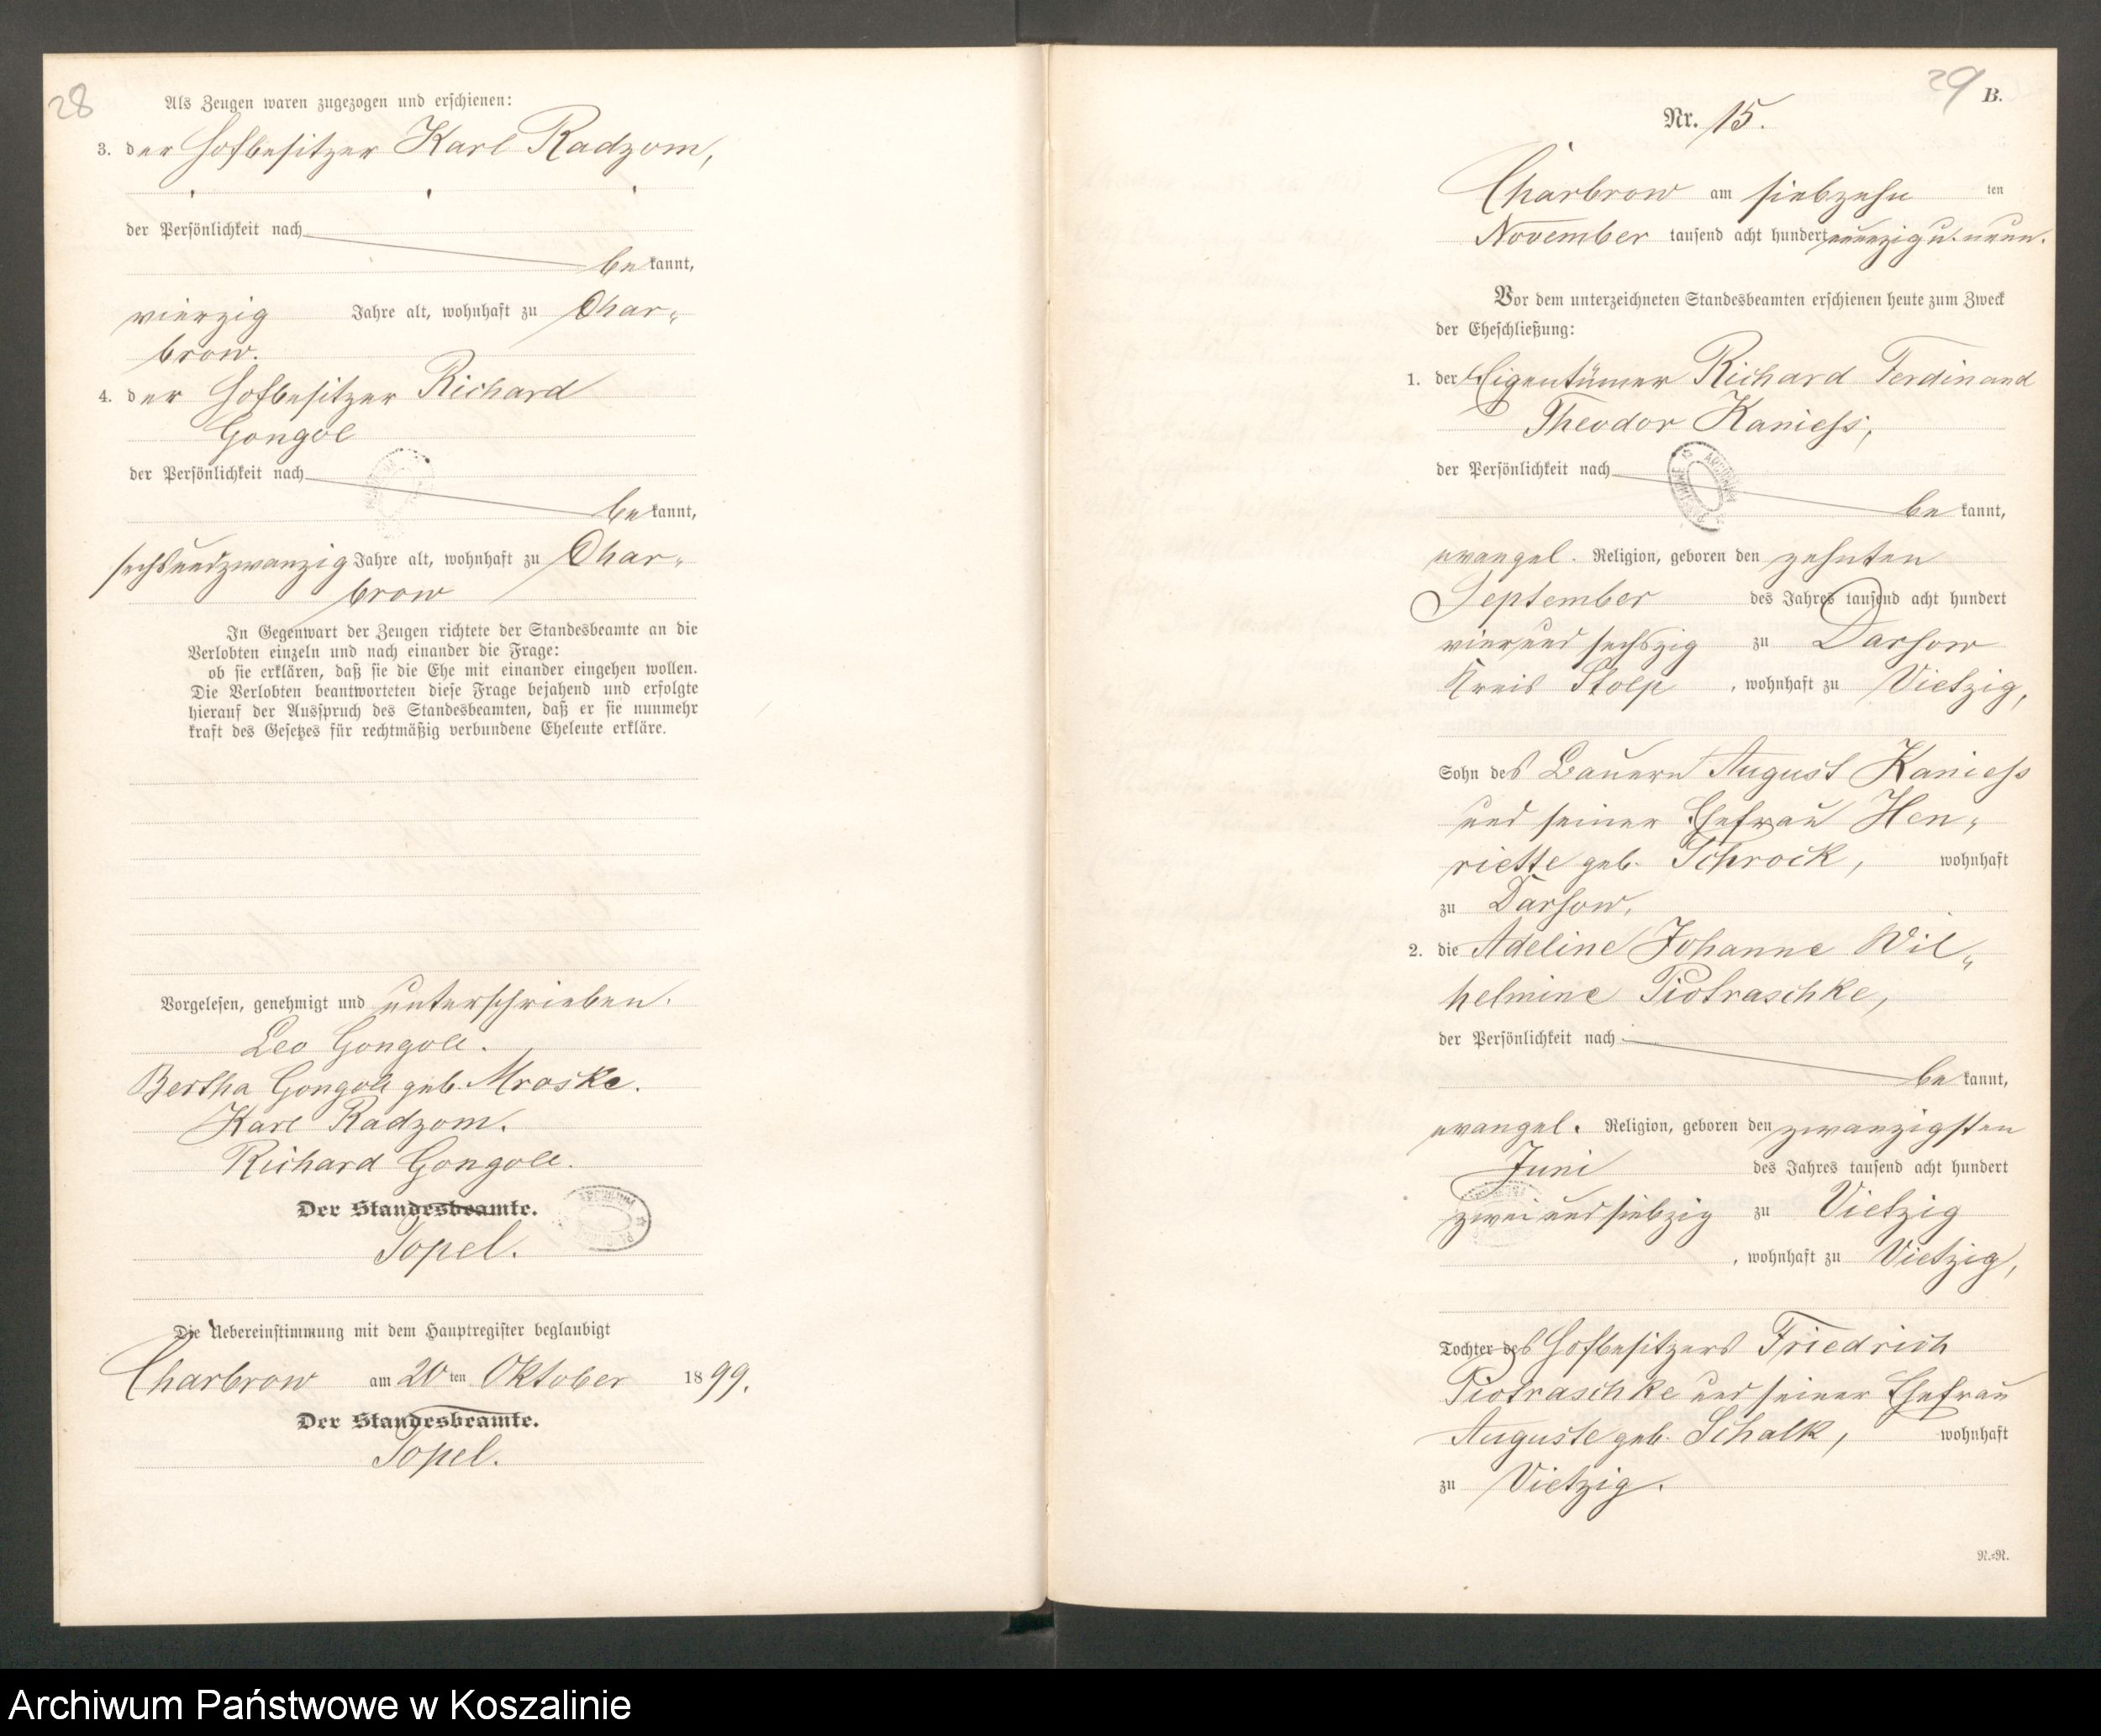 28
Als Zeugen waren zugezogen und erschienen:
3. der Hofbesitzer Karl Radzom,
der Persönlichkeit nach
bekannt,
vierzig Jahre alt, wohnhaft zu Char-
brow.
4. der Hofbesitzer Richard
Gongol
der Persönlichkeit nach
bekannt,
sechsundzwanzig Jahre alt, wohnhaft zu Char-
brow
In Gegenwart der Zeugen richtete der Standesbeamte an die
Verlobten einzeln und nach einander die Frage:
ob sie erklären, daß sie die Ehe mit einander eingehen wollen.
Die Verlobten beantworteten diese Frage bejahend und erfolgte
hierauf der Ausspruch des Standesbeamten, daß er sie nunmehr
kraft des Gesetzes für rechtmäßig verbundene Eheleute erkläre.
Vorgelesen, genehmigt und unterschrieben.
Leo Gongoll.
Bertha Gongoll geb. Mroske.
Karl Radzom.
Richard Gongoll.
Der Standesbeamte.
Topel.
Die Uebereinstimmung mit dem Hauptregister beglaubigt
Charbrow am 20ten Oktober 1899.
Der Standesbeamte.
Topel.
29
B.
Nr. 15.
Charbrow am siebzehnten
November tausend acht hundert neunzig u. neun.
Vor dem unterzeichneten Standesbeamten erschienen heute zum Zweck
der Eheschließung:
1. der Eigentümer Richard Ferdinand
Theodor Kaniess,
der Persönlichkeit nach
bekannt,
evangel. Religion, geboren den zehnten
September des Jahres tausend acht hundert
vier und sechszig zu Darsow
Kreis Stolp, wohnhaft zu Vietzig,
Sohn des Bauern August Kaniess
und seiner Ehefrau Hen-
riette geb. Schrock, wohnhaft
zu Darsow.
2. die Adeline Johanne Wil-
helmine Piotraschke,
der Persönlichkeit nach
bekannt,
evangel. Religion, geboren den zwanzigsten
Juni des Jahres tausend acht hundert
zwei und siebzig zu Vietzig
, wohnhaft zu Vietzig,
Tochter des Hofbesitzers Friedrich
Piotraschke und seiner Ehefrau
Auguste geb. Schalk, wohnhaft
zu Vietzig.
N.=N.
Archiwum Państwowe w Koszalinie